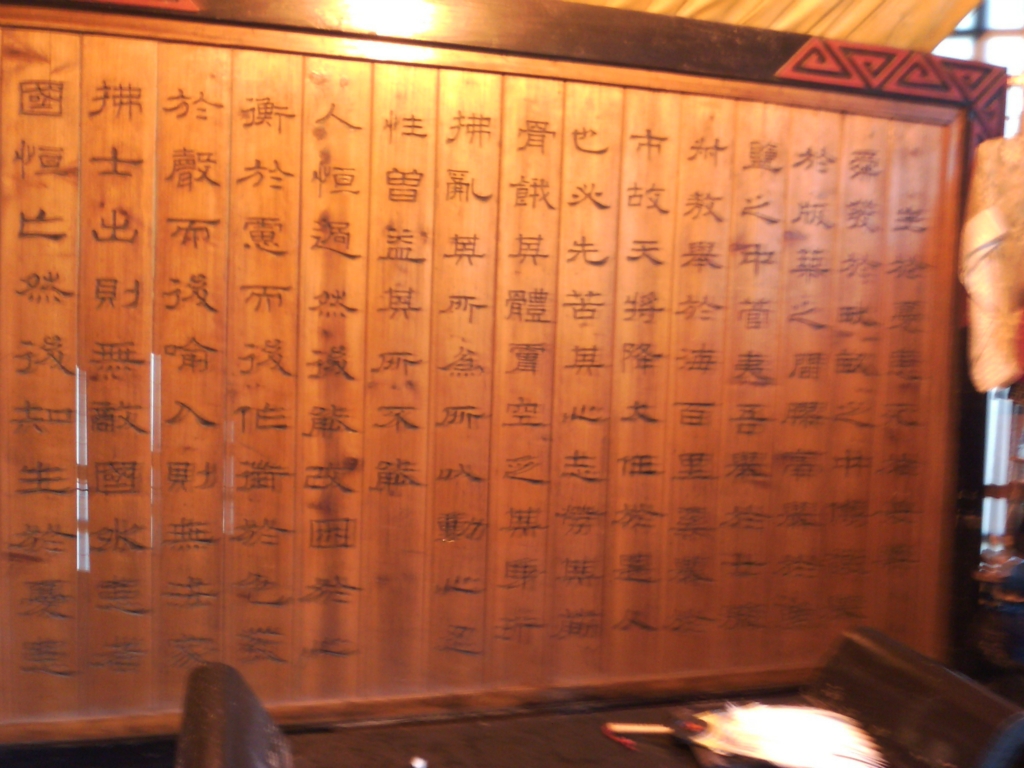 生於憂患死於安樂
舜發於畎畝之中傅說舉
於版築之間膠鬲舉於魚
鹽之中管夷吾舉於士孫
叔敖舉於海百里奚舉於
市故天將降大任於是人
也必先苦其心志勞其筋
骨餓其體膚空乏其身行
拂亂其所為所以動心忍
性曾益其所不能
人恒過然後能改困於心
衡於慮而後作徵於色發
於聲而後喻入則無法家
拂士出則無敵國外患者
國恒亡然後知生於憂患